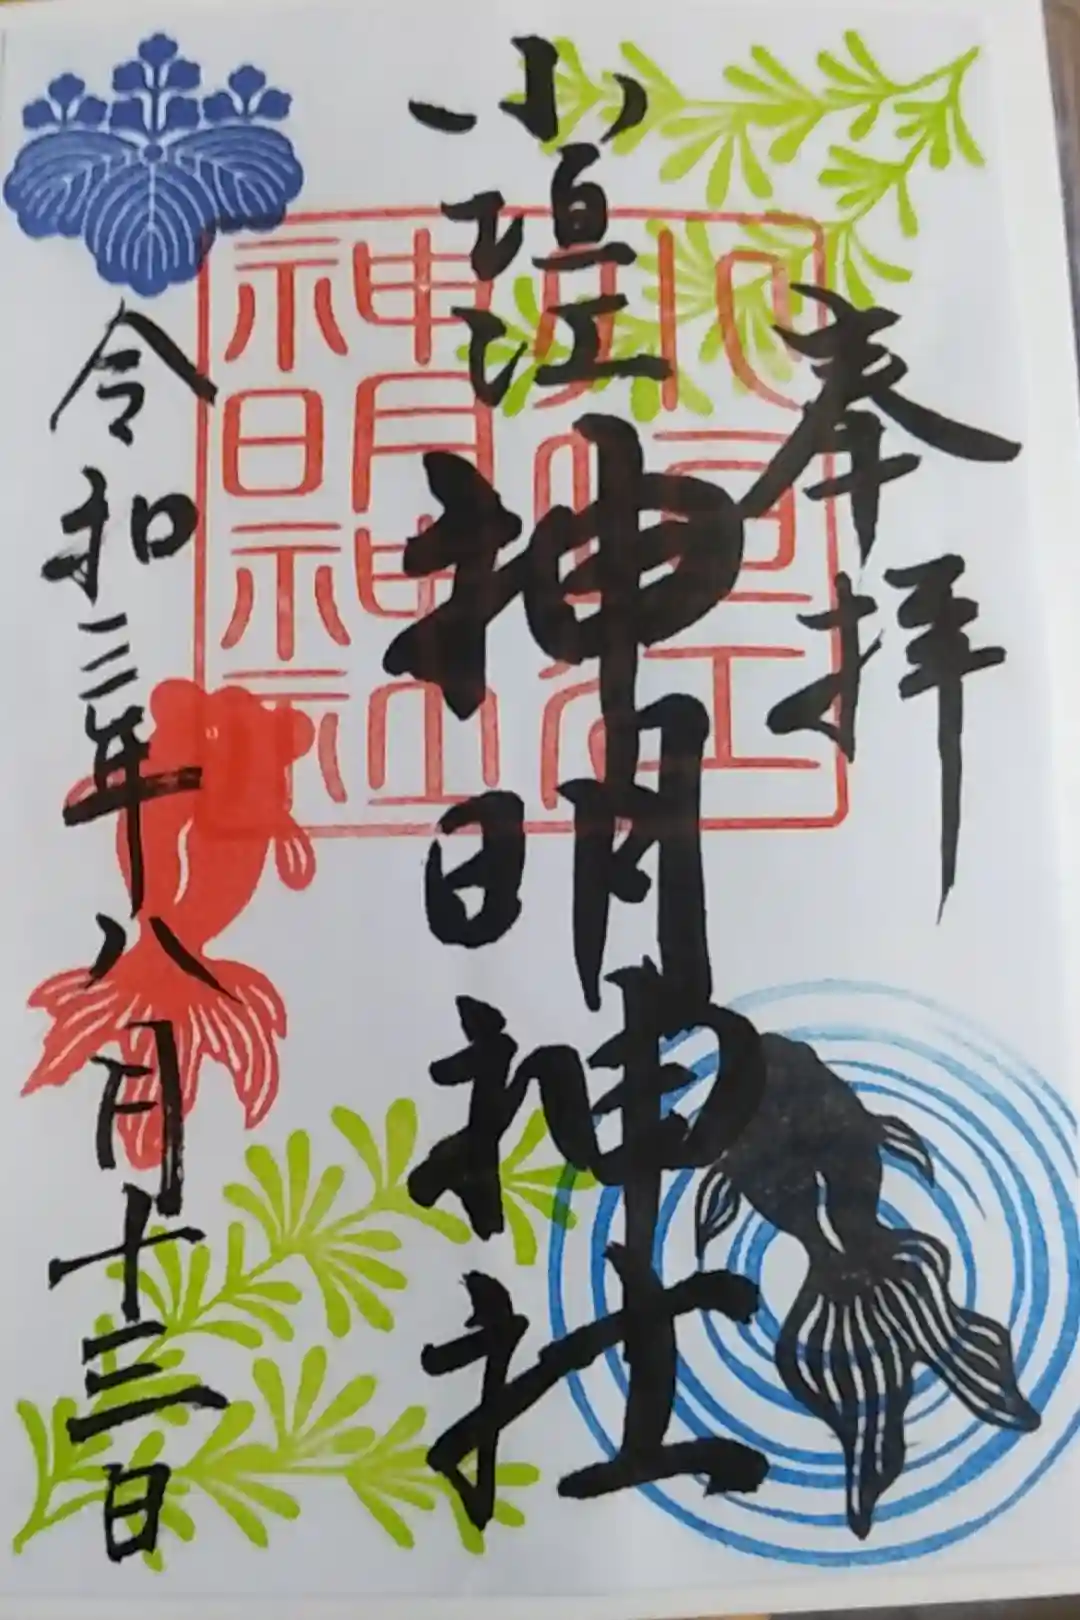 奉拝
小垣江神明神社
令和三年八月十三日
小垣江
神明神社